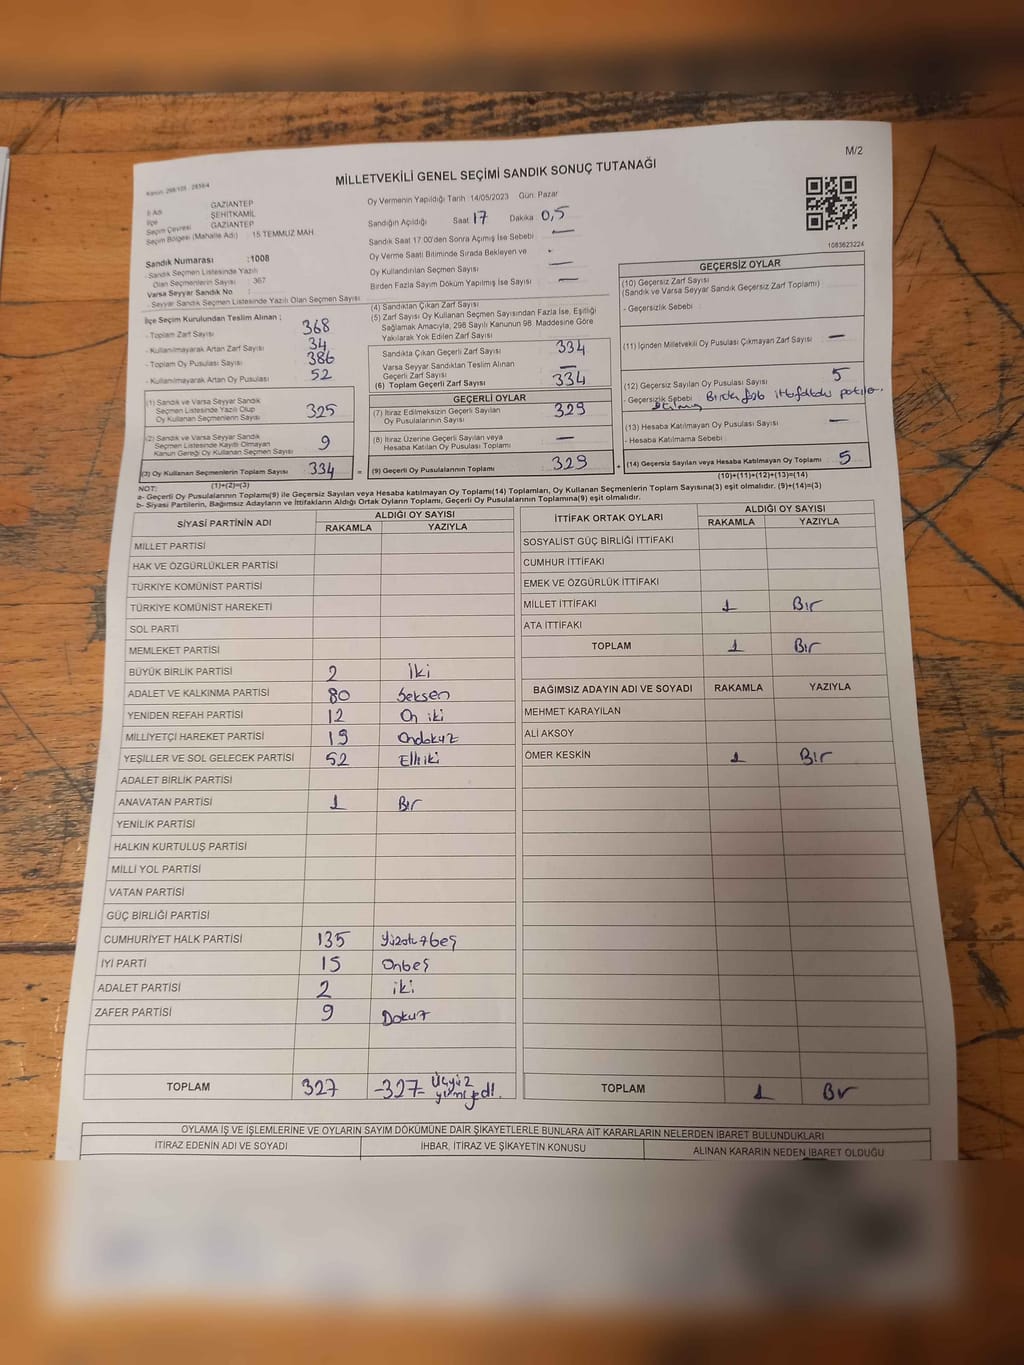 M/2
Kanun: 298/105 - 2839/4
MİLLETVEKİLİ GENEL SEÇİMİ SANDIK SONUÇ TUTANAĞI
İl Adı GAZİANTEP
İlçe ŞEHİTKAMİL
Seçim Çevresi GAZİANTEP
Seçim Bölgesi (Mahalle Adı) : 15 TEMMUZ MAH.
Sandık Numarası : 1008
- Sandık Seçmen Listesinde Yazılı
Olan Seçmenlerin Sayısı : 367
Varsa Seyyar Sandık No :
- Seyyar Sandık Seçmen Listesinde Yazılı Olan Seçmen Sayısı
Oy Vermenin Yapıldığı Tarih :14/05/2023 Gün: Pazar
Sandığın Açıldığı Saat 17 Dakika 0,5
Sandık Saat 17:00'den Sonra Açımış İse Sebebi —
Oy Verme Saati Bitiminde Sırada Bekleyen ve
Oy Kullandırılan Seçmen Sayısı —
Birden Fazla Sayım Döküm Yapılmış İse Sayısı —
1083623224
İlçe Seçim Kurulundan Teslim Alınan :
- Toplam Zarf Sayısı 368
- Kullanılmayarak Artan Zarf Sayısı 34
- Toplam Oy Pusulası Sayısı 386
- Kullanılmayarak Artan Oy Pusulası 52
(1) Sandık ve Varsa Seyyar Sandık
Seçmen Listesinde Yazılı Olup
Oy Kullanan Seçmenlerin Sayısı 325
(2) Sandık ve Varsa Seyyar Sandık
Seçmen Listesinde Kayıtlı Olmayan
Kanun Gereği Oy Kullanan Seçmen Sayısı 9
(3) Oy Kullanan Seçmenlerin Toplam Sayısı 334 =
(1)+(2)=(3)
(4) Sandıktan Çıkan Zarf Sayısı
(5) Zarf Sayısı Oy Kullanan Seçmen Sayısından Fazla İse, Eşitliği
Sağlamak Amacıyla, 298 Sayılı Kanunun 98. Maddesine Göre
Yakılarak Yok Edilen Zarf Sayısı
Sandıkta Çıkan Geçerli Zarf Sayısı 334
Varsa Seyyar Sandıktan Teslim Alınan
Geçerli Zarf Sayısı —
(6) Toplam Geçerli Zarf Sayısı 334
GEÇERLİ OYLAR
(7) İtiraz Edilmeksizin Geçerli Sayılan
Oy Pusulalarının Sayısı 329
(8) İtiraz Üzerine Geçerli Sayılan veya
Hesaba Katılan Oy Pusulası Toplamı —
(9) Geçerli Oy Pusulalarının Toplamı 329 +
GEÇERSİZ OYLAR
(10) Geçersiz Zarf Sayısı
(Sandık ve Varsa Seyyar Sandık Geçersiz Zarf Toplamı)
- Geçersizlik Sebebi :
(11) İçinden Milletvekili Oy Pusulası Çıkmayan Zarf Sayısı —
(12) Geçersiz Sayılan Oy Pusulası Sayısı 5
- Geçersizlik Sebebi
(13) Hesaba Katılmayan Oy Pusulası Sayısı —
- Hesaba Katılmama Sebebi
(14) Geçersiz Sayılan veya Hesaba Katılmayan Oy Toplamı 5
(10)+(11)+(12)+(13)=(14)
NOT:
a- Geçerli Oy Pusulalarının Toplamı(9) ile Geçersiz Sayılan veya Hesaba katılmayan Oy Toplamı(14) Toplamları, Oy Kullanan Seçmenlerin Toplam Sayısına(3) eşit olmalıdır. (9)+(14)=(3)
b- Siyasi Partilerin, Bağımsız Adayların ve İttifakların Aldığı Ortak Oyların Toplamı, Geçerli Oy Pusulalarının Toplamına(9) eşit olmalıdır.
SİYASİ PARTİNİN ADI ALDIĞI OY SAYISI
RAKAMLA YAZIYLA
MİLLET PARTİSİ
HAK VE ÖZGÜRLÜKLER PARTİSİ
TÜRKİYE KOMÜNİST PARTİSİ
TÜRKİYE KOMÜNİST HAREKETİ
SOL PARTİ
MEMLEKET PARTİSİ
BÜYÜK BİRLİK PARTİSİ 2 İki
ADALET VE KALKINMA PARTİSİ 80 Seksen
YENİDEN REFAH PARTİSİ 12 On iki
MİLLİYETÇİ HAREKET PARTİSİ 19 Ondokuz
YEŞİLLER VE SOL GELECEK PARTİSİ 52 Elliiki
ADALET BİRLİK PARTİSİ
ANAVATAN PARTİSİ 1 Bir
YENİLİK PARTİSİ
HALKIN KURTULUŞ PARTİSİ
MİLLİ YOL PARTİSİ
VATAN PARTİSİ
GÜÇ BİRLİĞİ PARTİSİ
CUMHURİYET HALK PARTİSİ 135 Yüzotuzbeş
İYİ PARTİ 15 Onbeş
ADALET PARTİSİ 2 iki
ZAFER PARTİSİ 9 Dokuz
TOPLAM 327 -327- Üçyüz yirmiyedi.
İTTİFAK ORTAK OYLARI ALDIĞI OY SAYISI
RAKAMLA YAZIYLA
SOSYALİST GÜÇ BİRLİĞİ İTTİFAKI
CUMHUR İTTİFAKI
EMEK VE ÖZGÜRLÜK İTTİFAKI
MİLLET İTTİFAKI 1 Bir
ATA İTTİFAKI
TOPLAM 1 Bir
BAĞIMSIZ ADAYIN ADI VE SOYADI RAKAMLA YAZIYLA
MEHMET KARAYILAN
ALİ AKSOY
ÖMER KESKİN 1 Bir
TOPLAM 1 Bir
OYLAMA İŞ VE İŞLEMLERİNE VE OYLARIN SAYIM DÖKÜMÜNE DAİR ŞİKAYETLERLE BUNLARA AİT KARARLARIN NELERDEN İBARET BULUNDUKLARI
İTİRAZ EDENİN ADI VE SOYADI İHBAR, İTİRAZ VE ŞİKAYETİN KONUSU ALINAN KARARIN NEDEN İBARET OLDUĞU